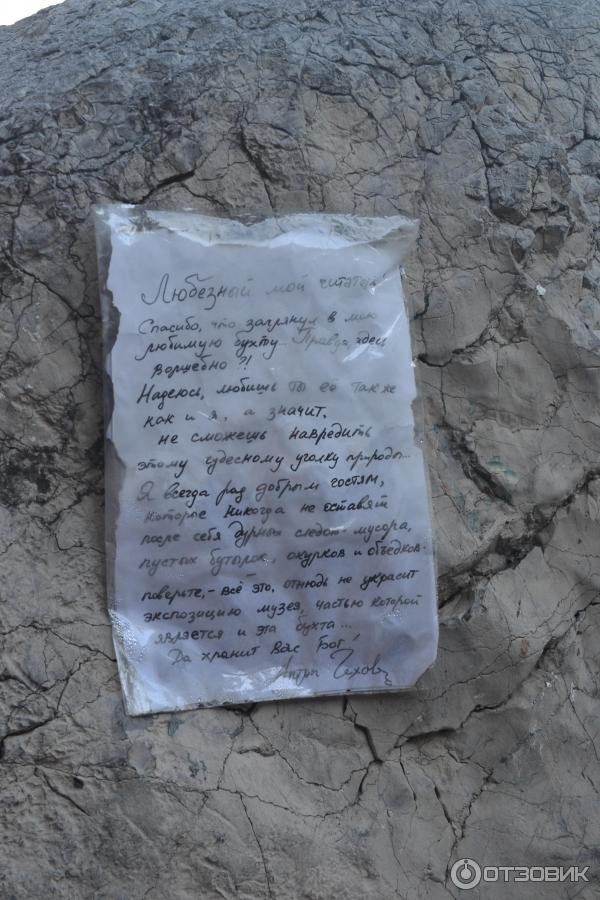 Любезный мой читатель!
Спасибо, что заглянул в мою
любимую бухту... Правда здесь
волшебно?!
Надеюсь, любишь ты её так же
как и я, а значит,
не сможешь навредить
этому чудесному уголку природы...
Я всегда рад добрым гостям,
которые никогда не оставят
после себя дурных следов - мусора,
пустых бутылок, окурков и объедков.
поверьте, - всё это, отнюдь не украсит
экспозицию музея, частью которой
является и эта бухта...
Да хранит Вас Бог!
Антон Чехов
ОТЗОВИК